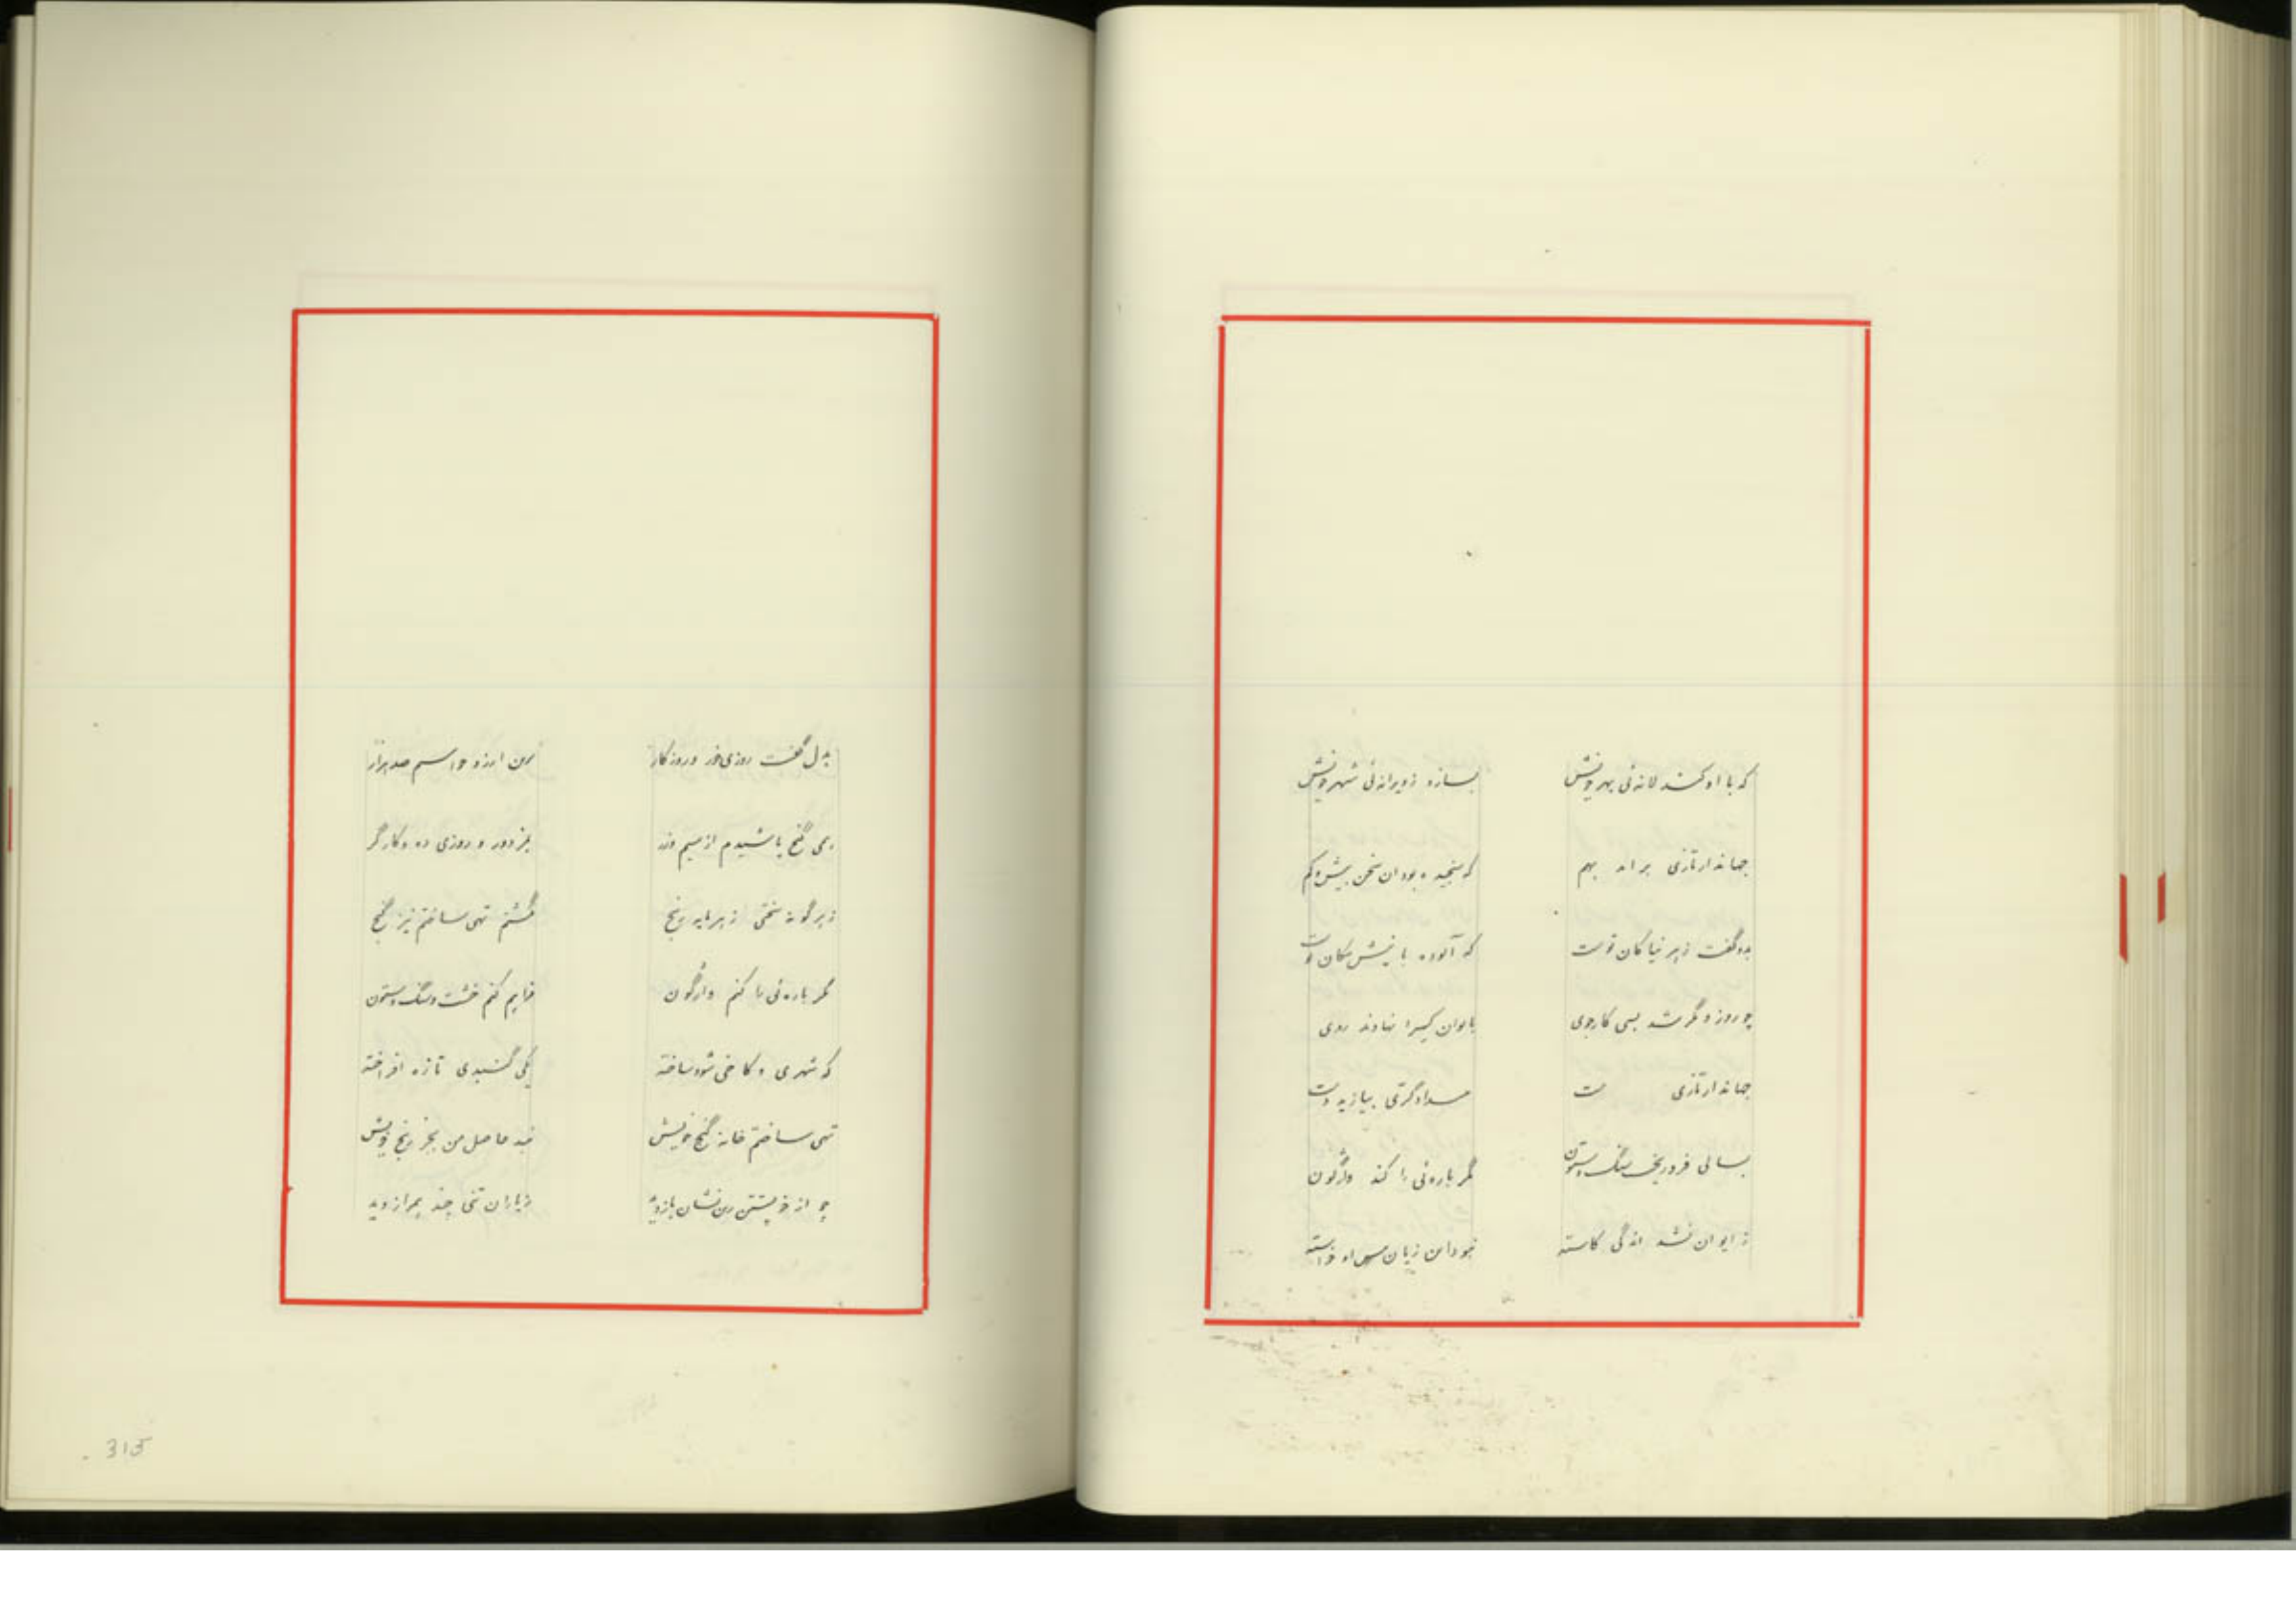 که با او کند لانه‌ئی بهر خویش
بسازد ز ویرانه‌ئی شهر خویش
جهاندار تازی بر آمد بهم
که سنجیده بود آن سخن بیش و کم
بدو گفت زهر نیاکان تست
که آلوده با نیش
چو روز دگر شد بسی کارجوی
بایوان کسرا نهادند روی
جهاندار تازی ت
بیازید دست
بسالی فرو ریخت سنگ و ستون
مگر باره‌ئی را کند واژگون
ز ایوان نشد اندکی کاسته
نبود این زیان خواسته
بدل گفت روزی خور و روزگار
ز من آرزو خواستم صد هزار
همی گنج پاشیدم از سیم و زر
بمزدور و روزی ده و کارگر
ز هر گونه سختی ز هر مایه رنج
کشم تهی ساختم نیز گنج
مگر باره‌ئی را کنم واژگون
فراهم کنم خشت و سنگ و ستون
که شهری و کاخی شود ساخته
یکی گنبدی تازه افراخته
تهی ساختم خانه گنج خویش
نبد حاصل من بجز رنج خویش
چو از خویشتن نشان بازدید
ز یاران تنی چند همراز دید
315